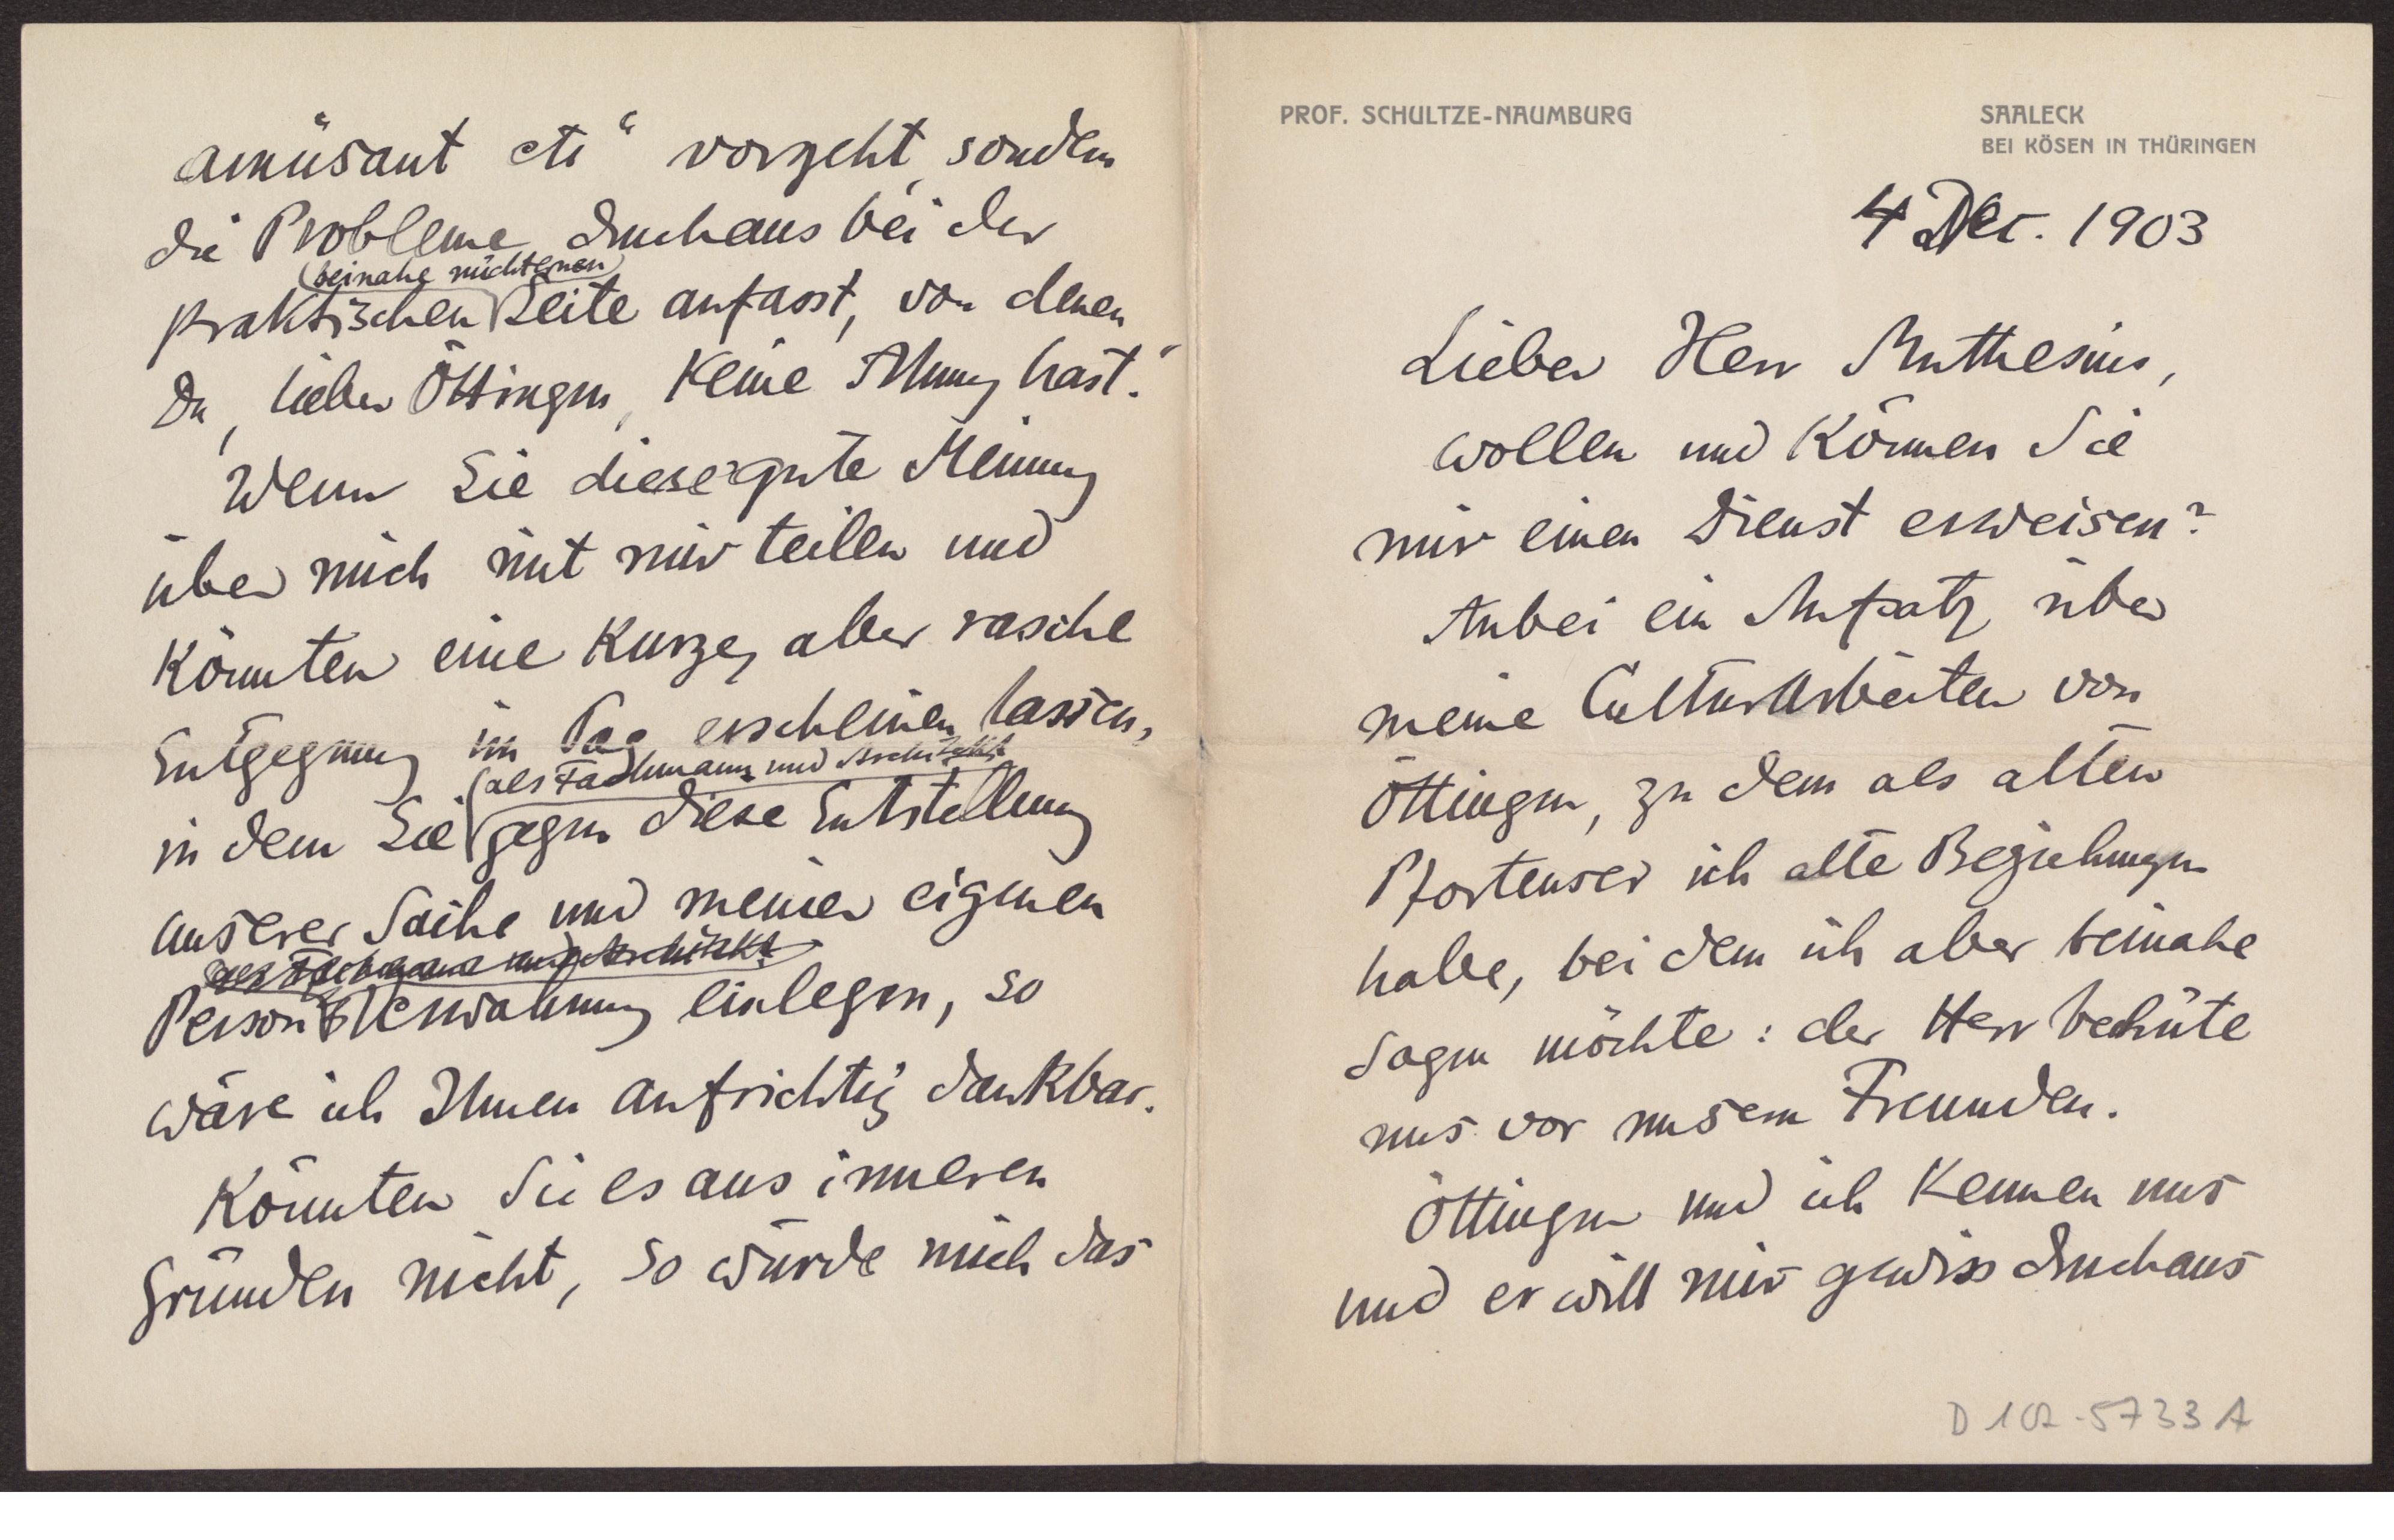 PROF. SCHULTZE-NAUMBURG
SAALECK
BEI KÖSEN IN THÜRINGEN
4 Dec. 1903
Lieber Herr Muthesius,
wollen und können Sie
mir einen Dienst erweisen?
Anbei ein Aufsatz über
meine Culturarbeiten von
Öttingen, zu dem als alten
Pfortenser ich alte Beziehungen
habe, bei dem ich aber beinahe
sagen möchte: der Herr behüte
uns vor unsern Freunden.
Öttingen und ich kennen uns
und er will mir gewiss durchaus
D 102-5733 A
amüsant etc" vorgeht, sondern
die Probleme durchaus bei der
(beinahe nüchternen)
praktischen Seite anfasst, von denen
Du, lieber Öttingen, keine Ahnung hast."
Wenn Sie diese gute Meinung
über mich mit mir teilen und
könnten eine kurze, aber rasche
Entgegnung im Tag erscheinen lassen,
(als Fachmann und Architekt)
in dem Sie gegen diese Entstellung
unserer Sache und meiner eigenen
als Fachmann und Architekt
Person Verwahrung einlegen, so
wäre ich Ihnen aufrichtig dankbar.
Könnten Sie es aus inneren
Gründen nicht, so würde mich das